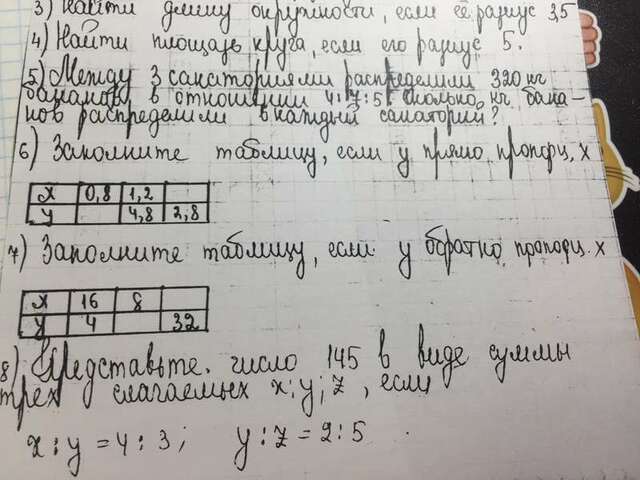 3) Найти длину окружности, если её радиус 35
4) Найти площадь круга, если его радиус 5.
5) Между 3 санаториями распределили 320 кг
бананов в отношении 4:7:5 сколько кг бана-
нов распределили в каждый санаторий?
6) Заполните таблицу, если у прямо пропорц. х
х 0,8 1,2
у 4,8 2,8
7) Заполните таблицу, если у обратно пропорц. х
х 16 8
у 4 32
8) Представьте число 145 в виде суммы
трех слагаемых х; у; z, если
х:у = 4:3; у:z = 2:5